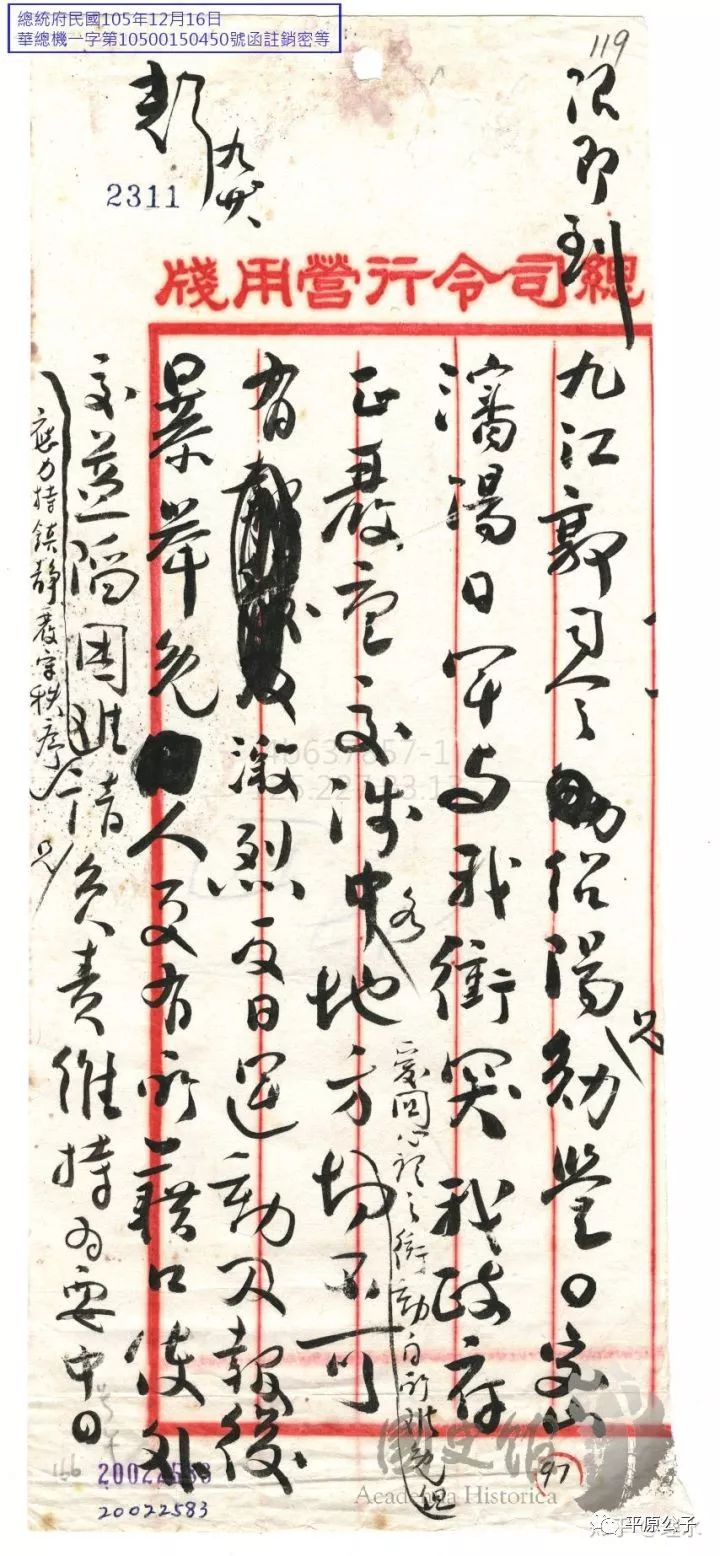 總統府民國105年12月16日
華總機一字第10500150450號函註銷密等
119
限即到
總司令行營用牋
九江郭司令
紹陽
兄
勛鑒
瀋陽日軍與我衝突我政府
正嚴重交涉中
各
地方切不可
愛國心理之衝動自所難免但
有
激烈反日運動及報復
暴舉免
人更有所藉口使外
交益陷困難
應力持鎮靜嚴守秩序
請
兄
負責維持為要中
2311
97
166
20022583
20022583
國史館
Academia Historica
平原公子